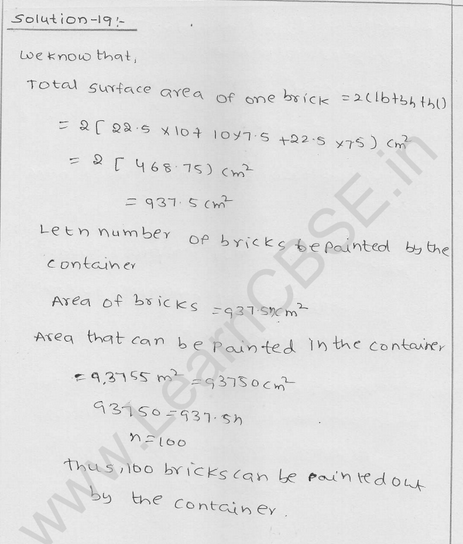 Solution-19:-
We know that,
Total surface area of one brick = 2(lb+bh+hl)
= 2[22.5 ×10+ 10×7.5 +22.5 ×75) cm²
= 2 [468.75) cm²
= 937.5 cm²
Let n number of bricks be painted by the
container
Area of bricks = 937.5n cm²
Area that can be painted in the container
= 9.3755 m² = 93750 cm²
93750 = 937.5n
n=100
Thus, 100 bricks can be painted out
by the container.
www.LearnCBSE.in